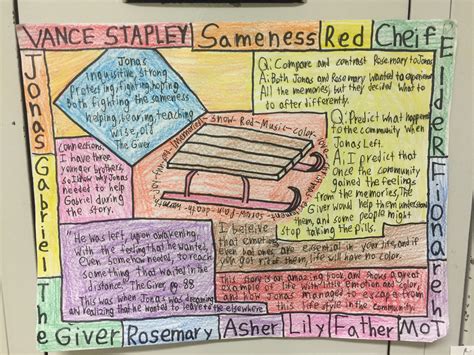 VANCE STAPLEY Sameness Red Cheif
Elder
Fiona
Jonas
Gabriel
The Giver Rosemary Asher Lily Father Mot
Jonas
Inquisitive, strong
Protecting, fighting, hoping
Both fighting the sameness
helping, bearing, teaching
wise, old
The Giver
Q: Compare and contrast Rosemary to Jonas
A: Both Jonas and Rosemary wanted to experience
All the memories, but they decided what to
to after differently.
Q: Predict what happens
to the community when
Jonas left.
A: I predict that
once the community
gained the feelings
from the memories, The
Giver would help them understand
them, and some people might
stop taking the pills.
Connections:
I have three
younger brothers,
so I know why Jonas
needed to help
Gabriel during
the story.
(Memories) Snow-Red-Music-color
pain-death
"He was left, upon awakening
with the feeling that he wanted,
even somehow needed, to reach
something that waited in the
distance." The Giver, pg 88
This was when Jonas was dreaming
an realizing that he wanted to leave to the elsewhere.
I beleive
that emotions,
even bad ones, are essential in your life, and if
you got rid of them, life will have no color.
This story is an amazing book and shows a great
example of life with little emotion and color,
and how Jonas managed to escape from
this life style in the community.